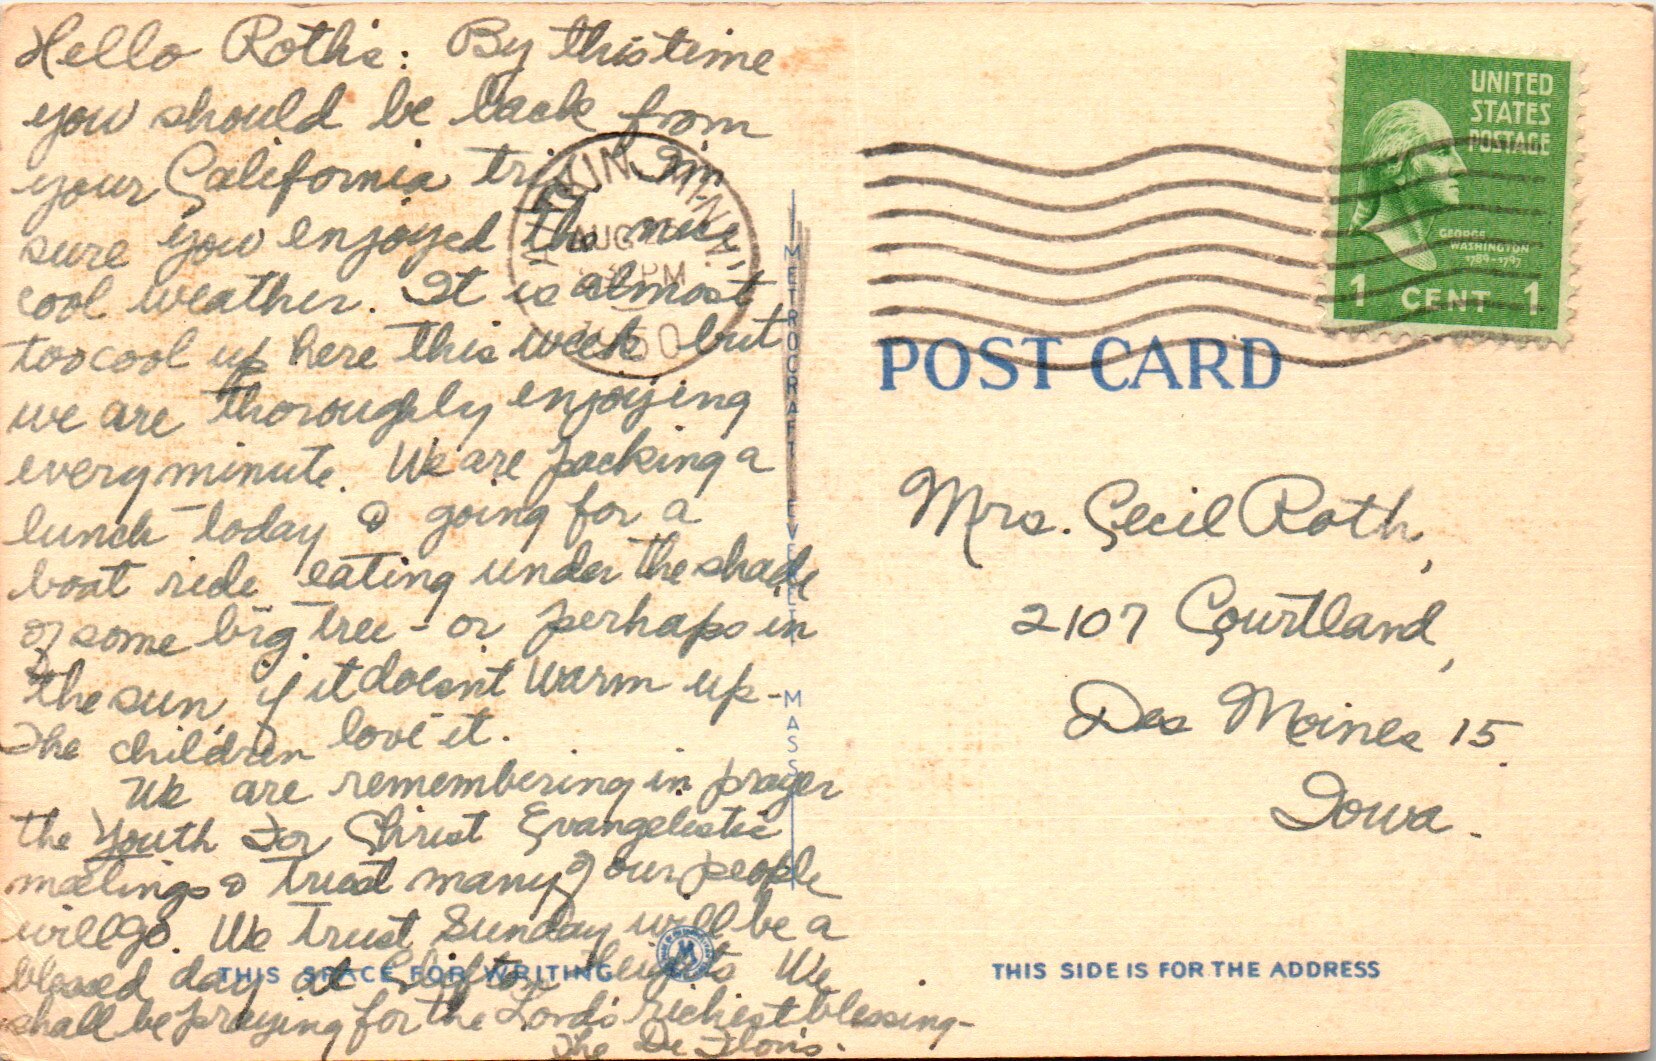 Hello Roths: By this time
you should be back from
your California trip. I'm
sure you enjoyed the nice
cool weather. It is almost
too cool up here this week but
we are thoroughly enjoying
every minute. We are packing a
lunch today & going for a
boat ride eating under the shade
of some big tree - or perhaps in
the sun, if it doesn't warm up -
The children love it.
We are remembering in prayer
the Youth For Christ Evangelistic
meetings & trust many of our people
will go. We trust Sunday will be a
blessed day at Clifton Heights We
shall be praying for the Lord's richest blessing -
The De Flons.
MINN.
AUG
PM
50
METROCRAFT EVERETT, MASS
THIS SPACE FOR WRITING
M
UNITED
STATES
POSTAGE
GEORGE
WASHINGTON
1789-1797
1 CENT 1
POST CARD
Mrs. Cecil Roth,
2107 Courtland,
Des Moines 15.
Iowa.
THIS SIDE IS FOR THE ADDRESS